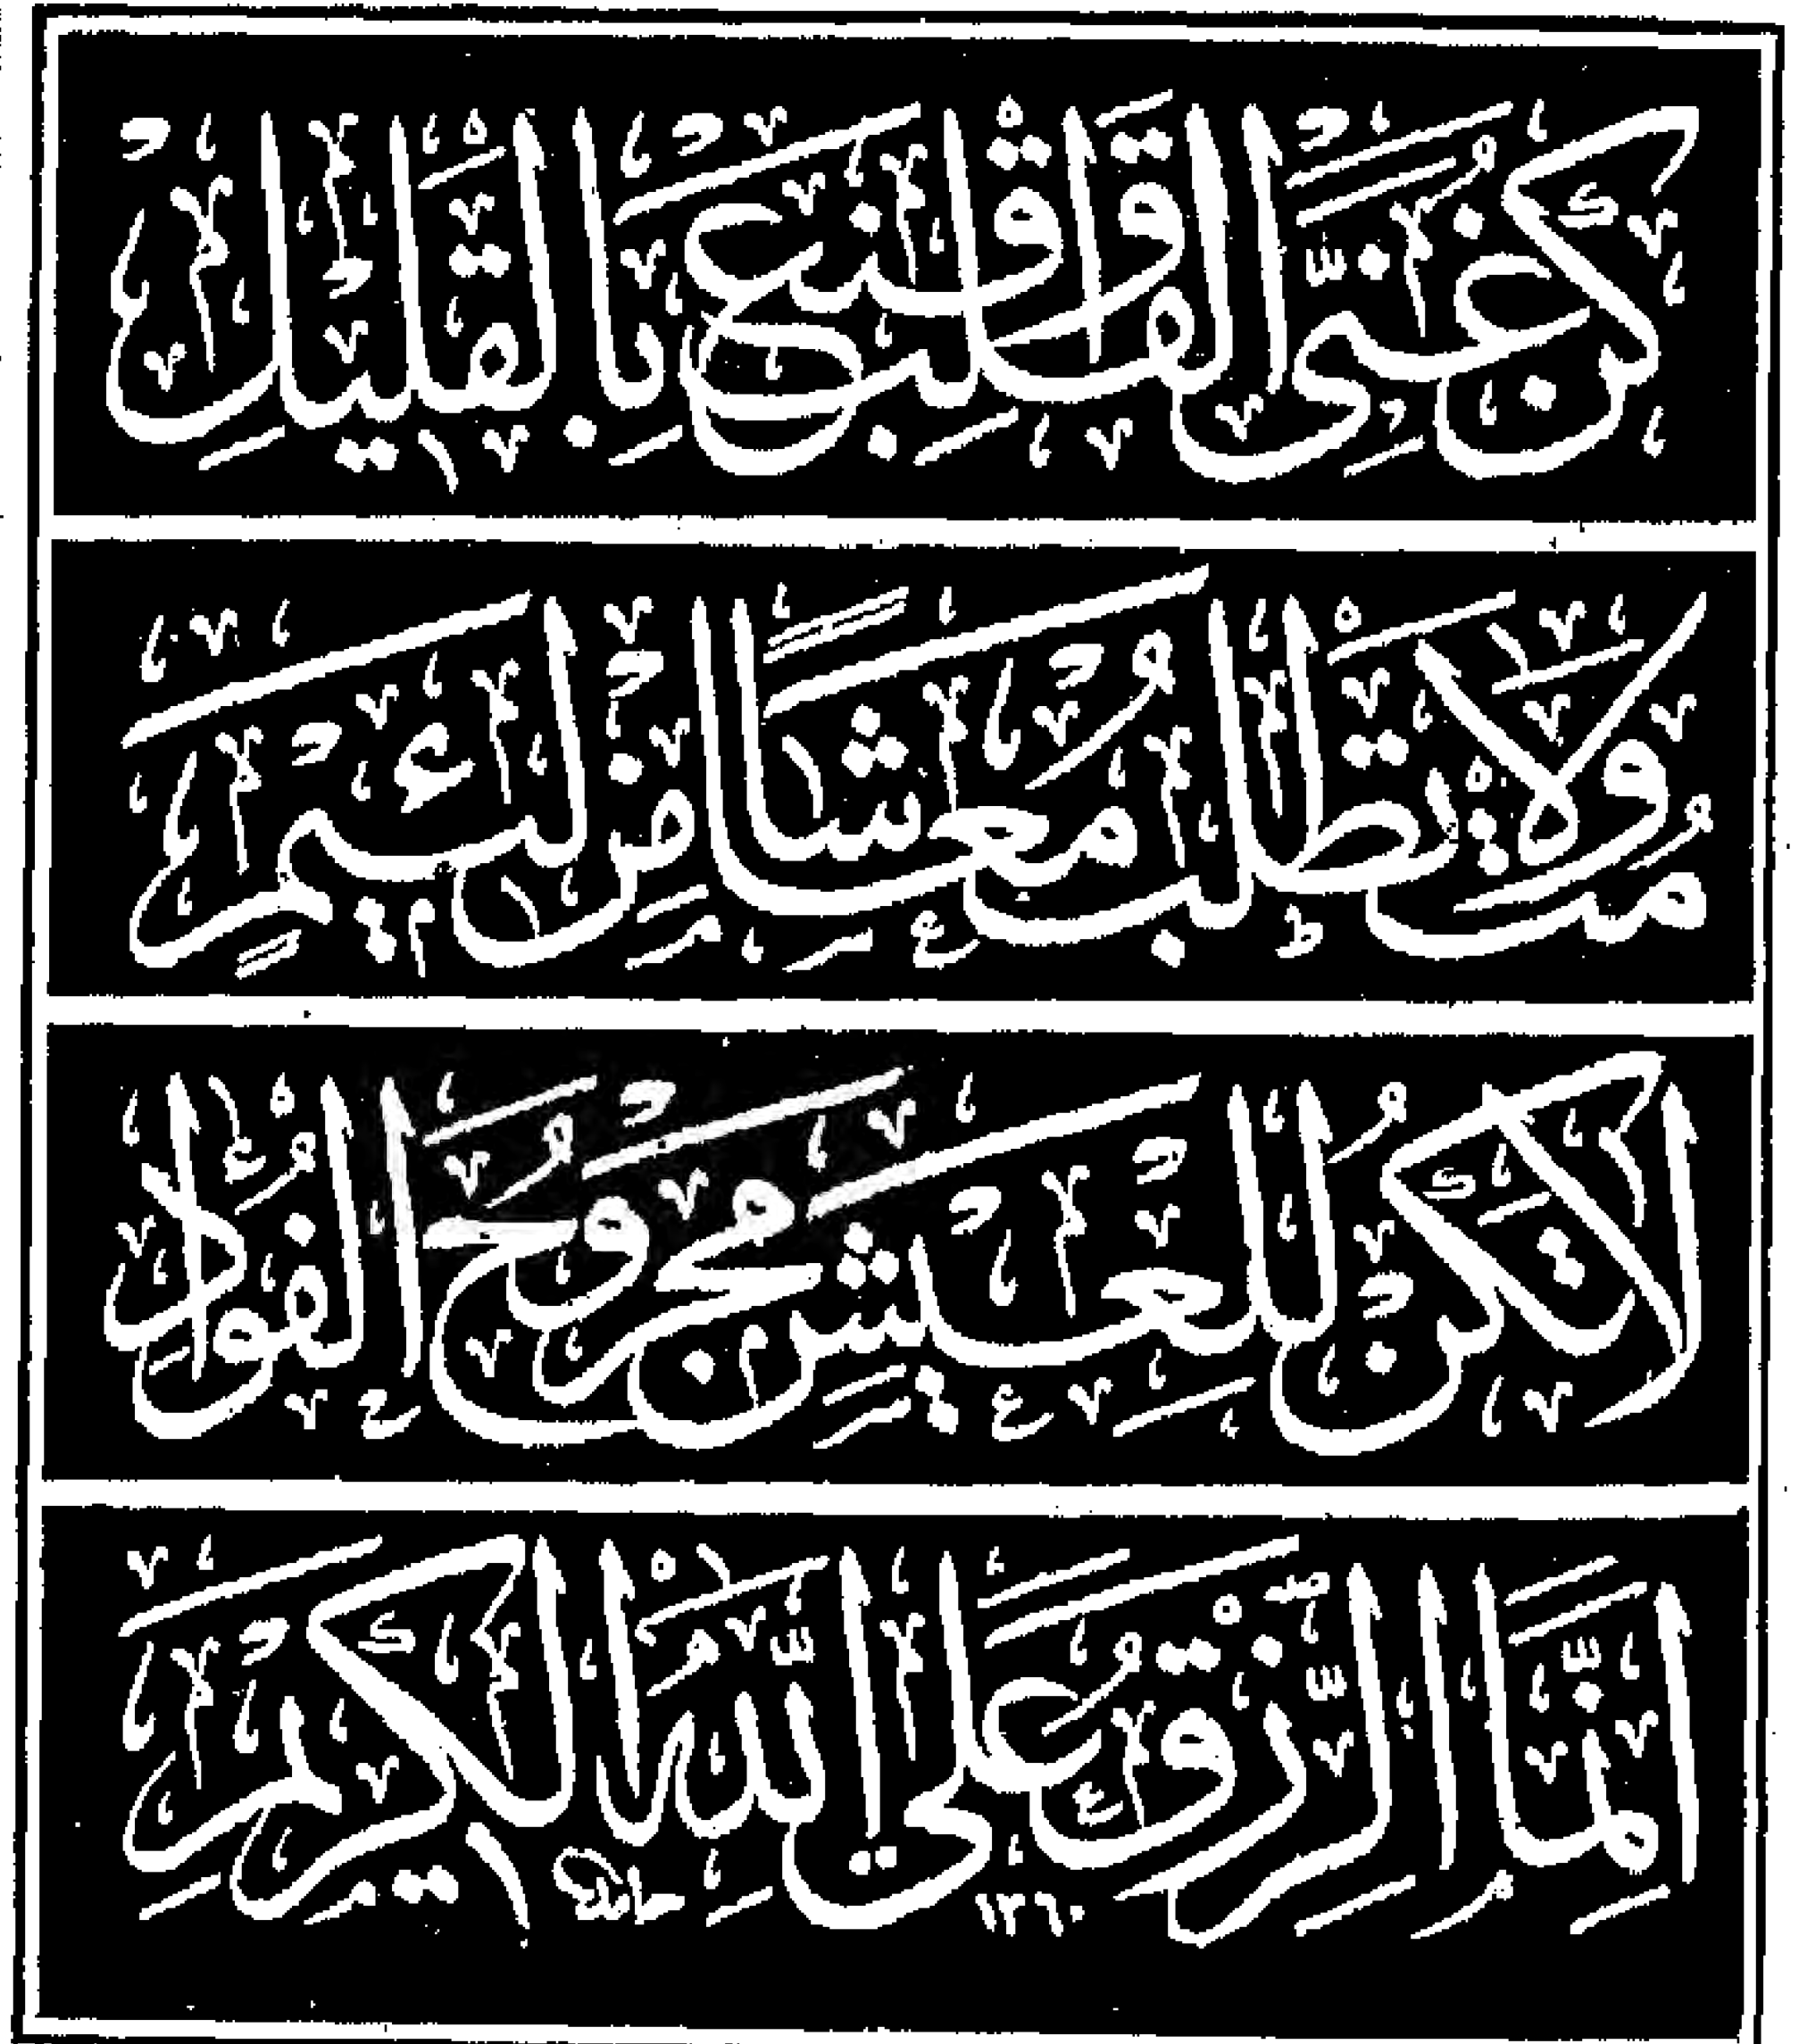 كن غني القلب واقنع بالقليل
مت ولا تطلب معاشا من لئيم
لا تكن للعيش مجروح الفؤاد
إنما الرزق على الله الكريم
١٣٦٠